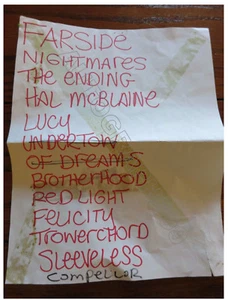 FARSIDE
NIGHTMARES
THE ENDING
HAL MCBLAINE
LUCY
UNDERTOW
OF DREAMS
BROTHERHOOD
RED LIGHT
FELICITY
TROWERCHORD
SLEEVELESS
COMPELLOR